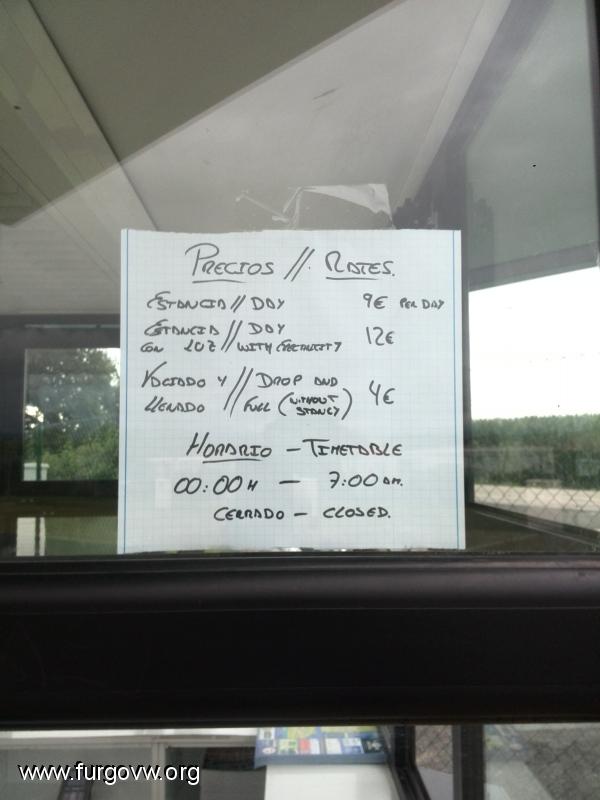 PRECIOS // RATES.
ESTANCIA // DAY 9€ PER DAY
ESTANCIA // DAY
CON LUZ // WITH ELECTRICITY 12€
VACIADO Y // DROP AND
LLENADO // FULL (WITHOUT STANCY) 4€
HORARIO - TIMETABLE
00:00H - 7:00 AM.
CERRADO - CLOSED.
www.furgovw.org